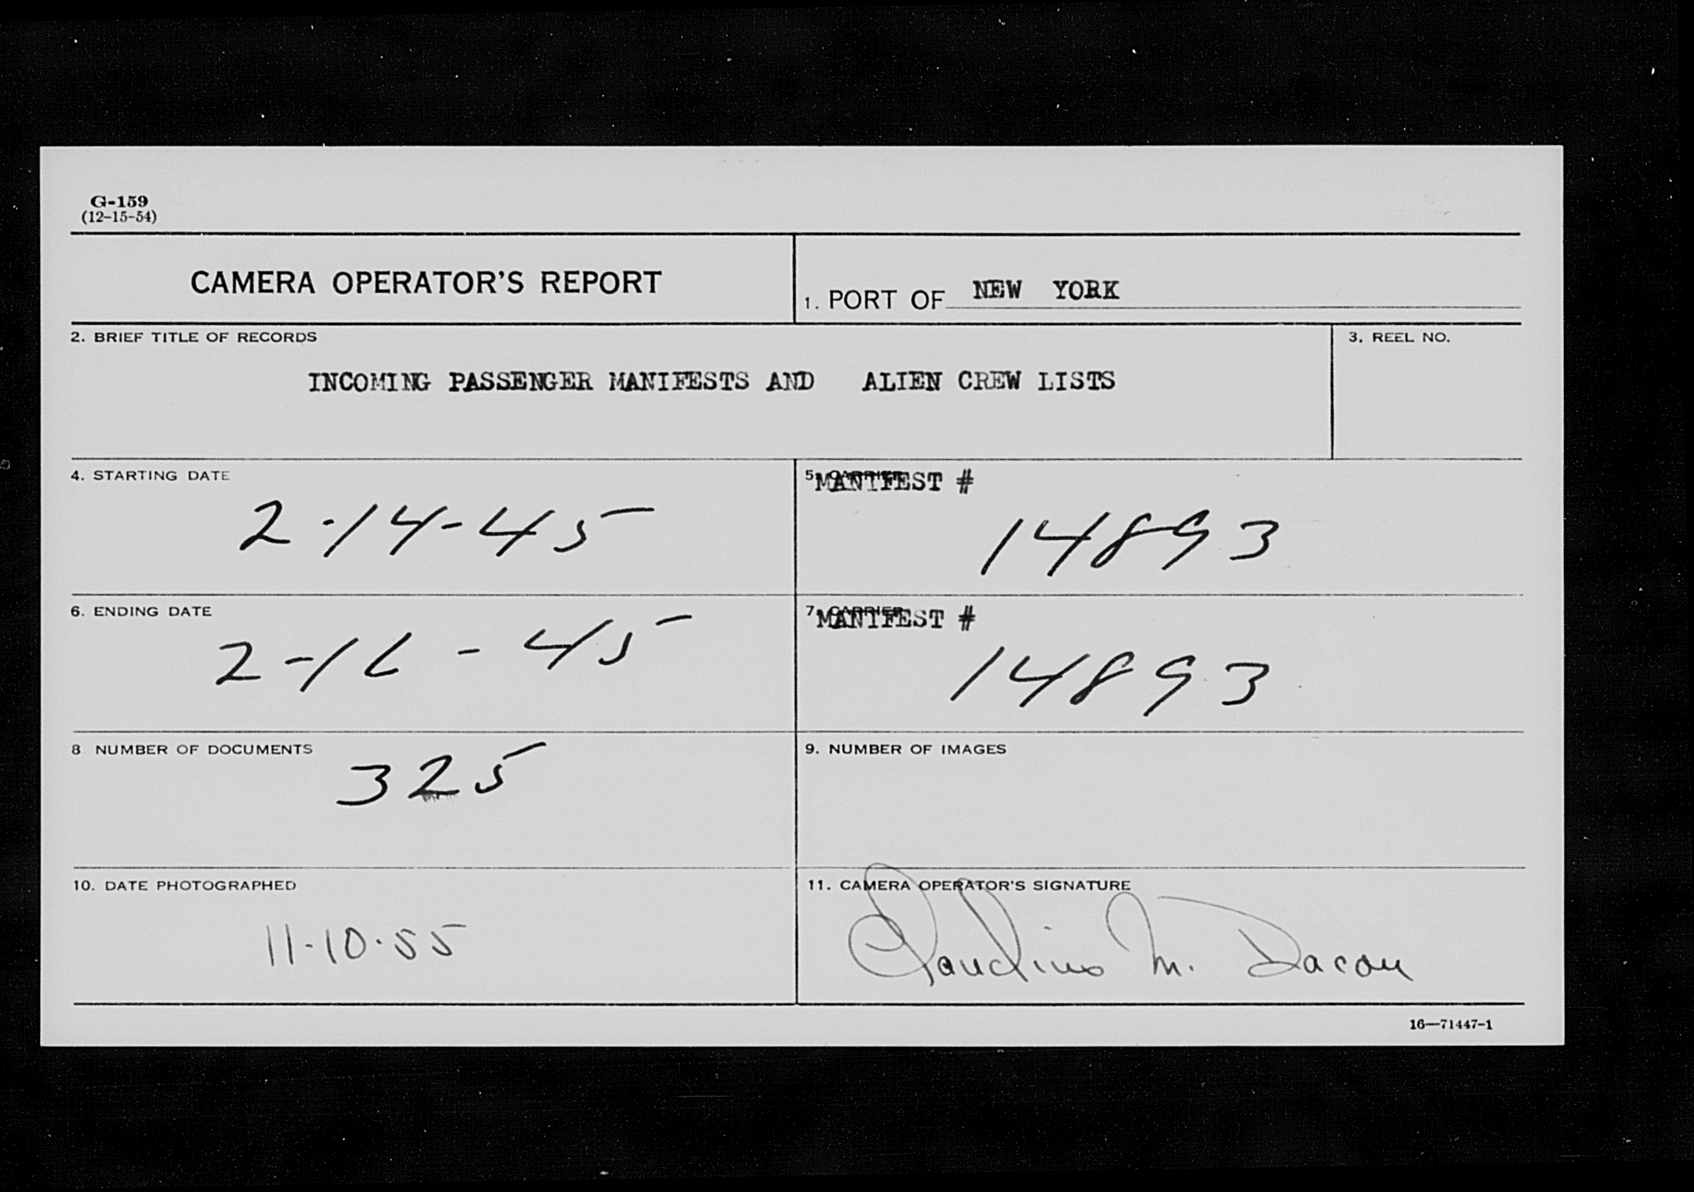 G-159
(12-15-54)
CAMERA OPERATOR'S REPORT
1. PORT OF NEW YORK
2. BRIEF TITLE OF RECORDS
3. REEL NO.
INCOMING PASSENGER MANIFESTS AND ALIEN CREW LISTS
4. STARTING DATE
2-14-45
5. MANIFEST #
14893
6. ENDING DATE
2-16-45
7. MANIFEST #
14893
8 NUMBER OF DOCUMENTS
325
9. NUMBER OF IMAGES
10. DATE PHOTOGRAPHED
11-10-55
11. CAMERA OPERATOR'S SIGNATURE
Claudius M. Dacon
16—71447-1